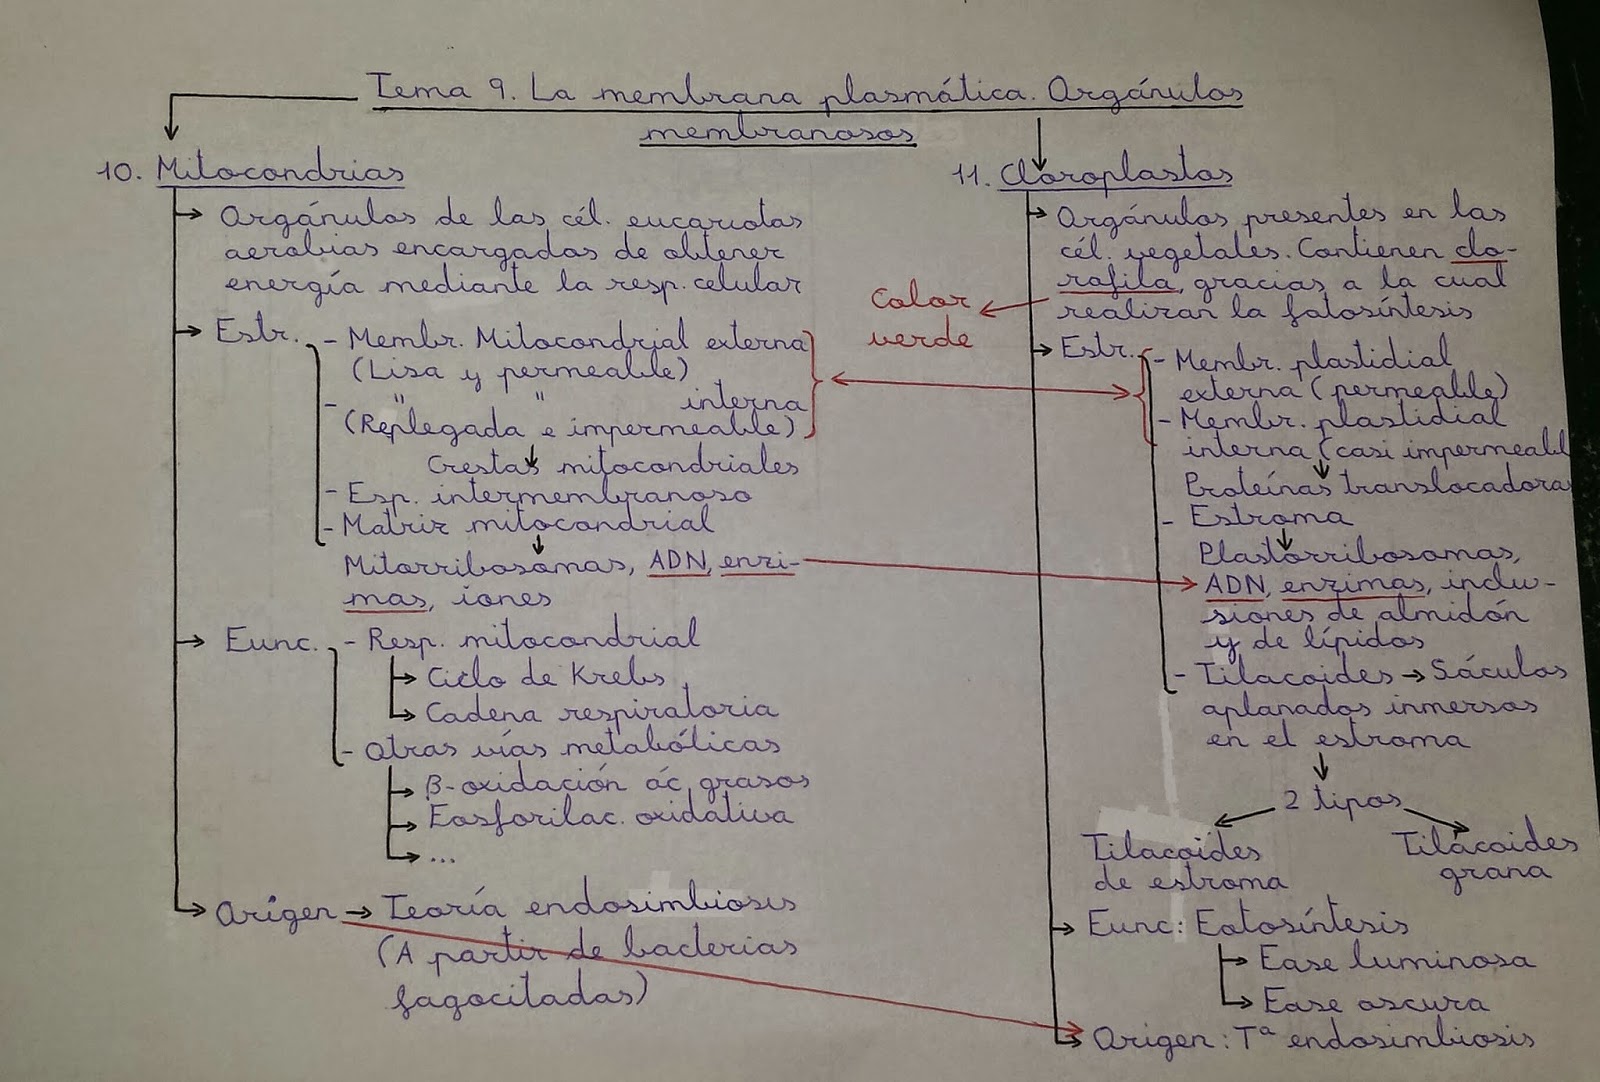 Tema 9. La membrana plasmática. Orgánulos
membranosos
10. Mitocondrias
Orgánulos de las cél. eucariotas
aerobias encargados de obtener
energía mediante la resp. celular
Estr. - Membr. Mitocondrial externa
(Lisa y permeable)
- " " interna
(Replegada e impermeable)
Crestas mitocondriales
- Esp. intermembranoso
- Matriz mitocondrial
Mitorribosomas, ADN, enzi-
mas, iones
Func. - Resp. mitocondrial
Ciclo de Krebs
Cadena respiratoria
- Otras vías metabólicas
β-oxidación ác. grasos
Fosforilac. oxidativa
...
Origen → Teoría endosimbiosis
(A partir de bacterias
fagocitadas)
Color
verde
11. Cloroplastos
Orgánulos presentes en las
cél. vegetales. Contienen clo-
rofila, gracias a la cual
realizan la fotosíntesis
Estr. - Membr. plastidial
externa (permeable)
- Membr. plastidial
interna (casi impermeabl
Proteínas translocadora
- Estroma
Plastorribosomas,
ADN, enzimas, inclu-
siones de almidón
y de lípidos
- Tilacoides → Sáculos
aplanados inmersos
en el estroma
2 tipos
Tilacoides
de estroma
Tilacoides
grana
Func: Fotosíntesis
Fase luminosa
Fase oscura
Origen: Tª endosimbiosis